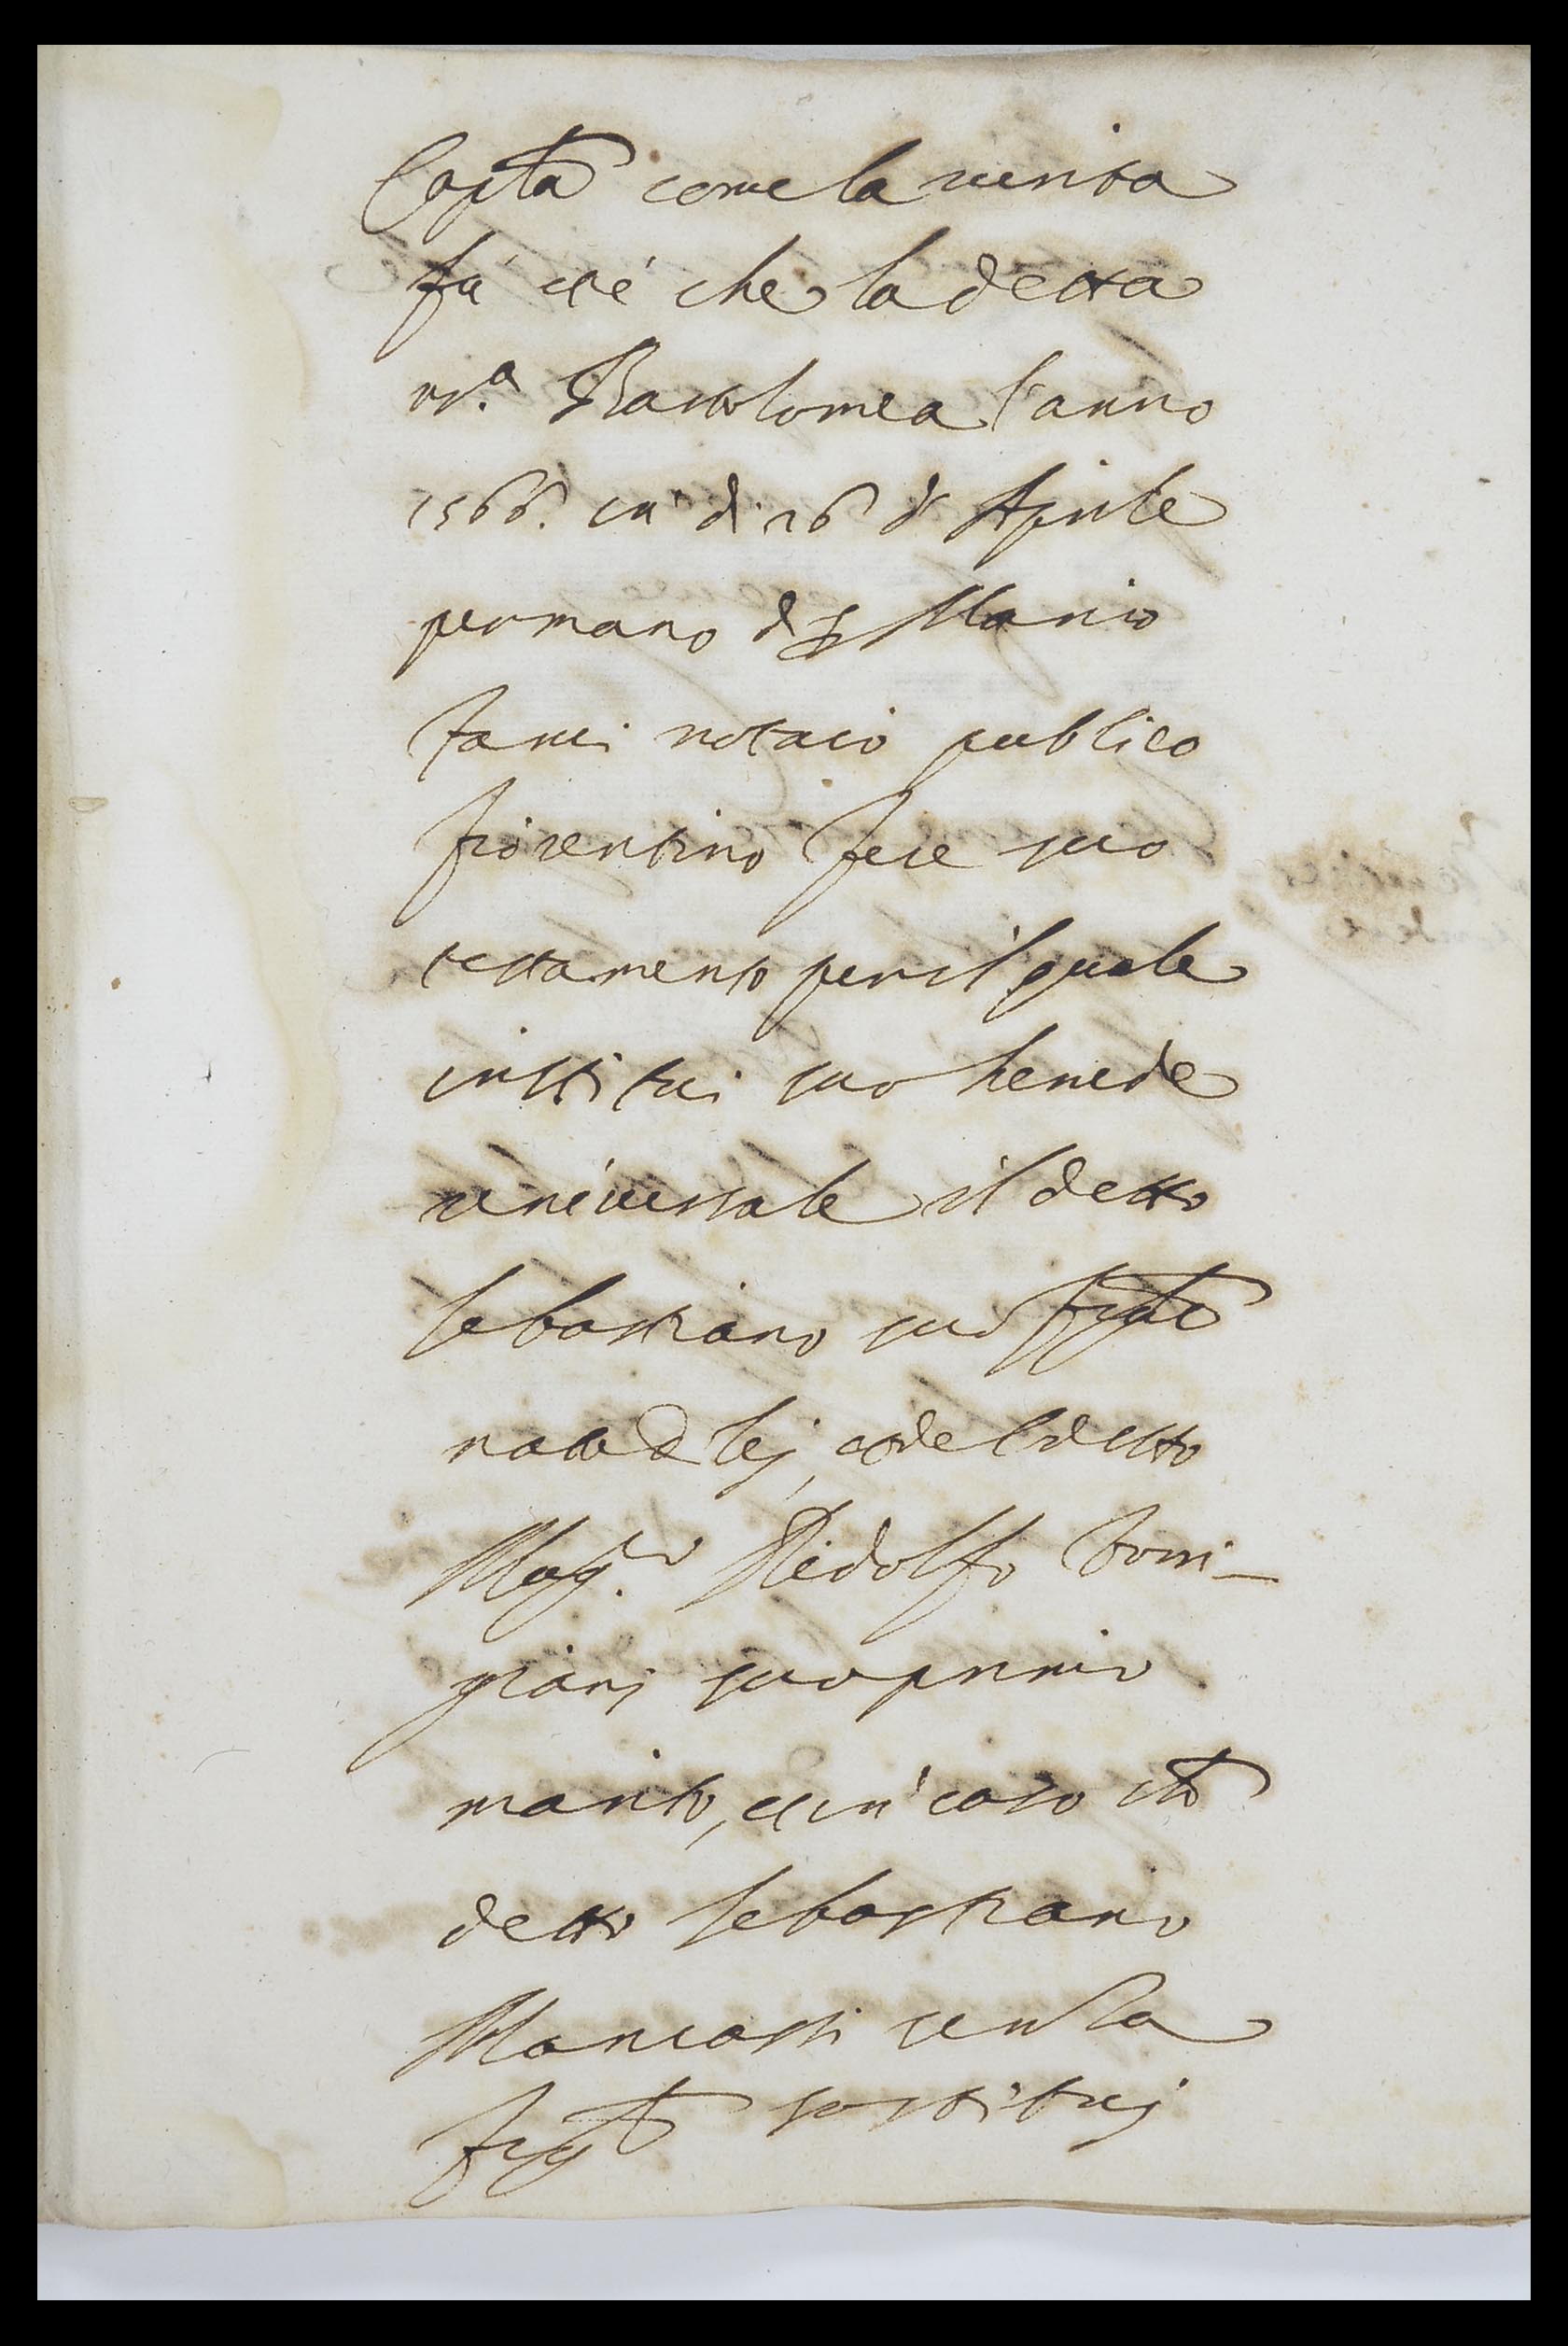 Copta come la verita
fu' et è che la detta
m.ª Bartolomea l'anno
1566. in di 26 di Aprile
per mano di Ser Mario
Tanci notaio publico
fiorentino fece suo
testamento per il quale
instituì suo herede
universale il detto
Sebastiano suo figlo
nato di lej, et del detto
Mag.co Ridolfo Torri-
giani suo primo
marito, et in caso che
detto Sebastiano
Mancassi senza
figli sostituj